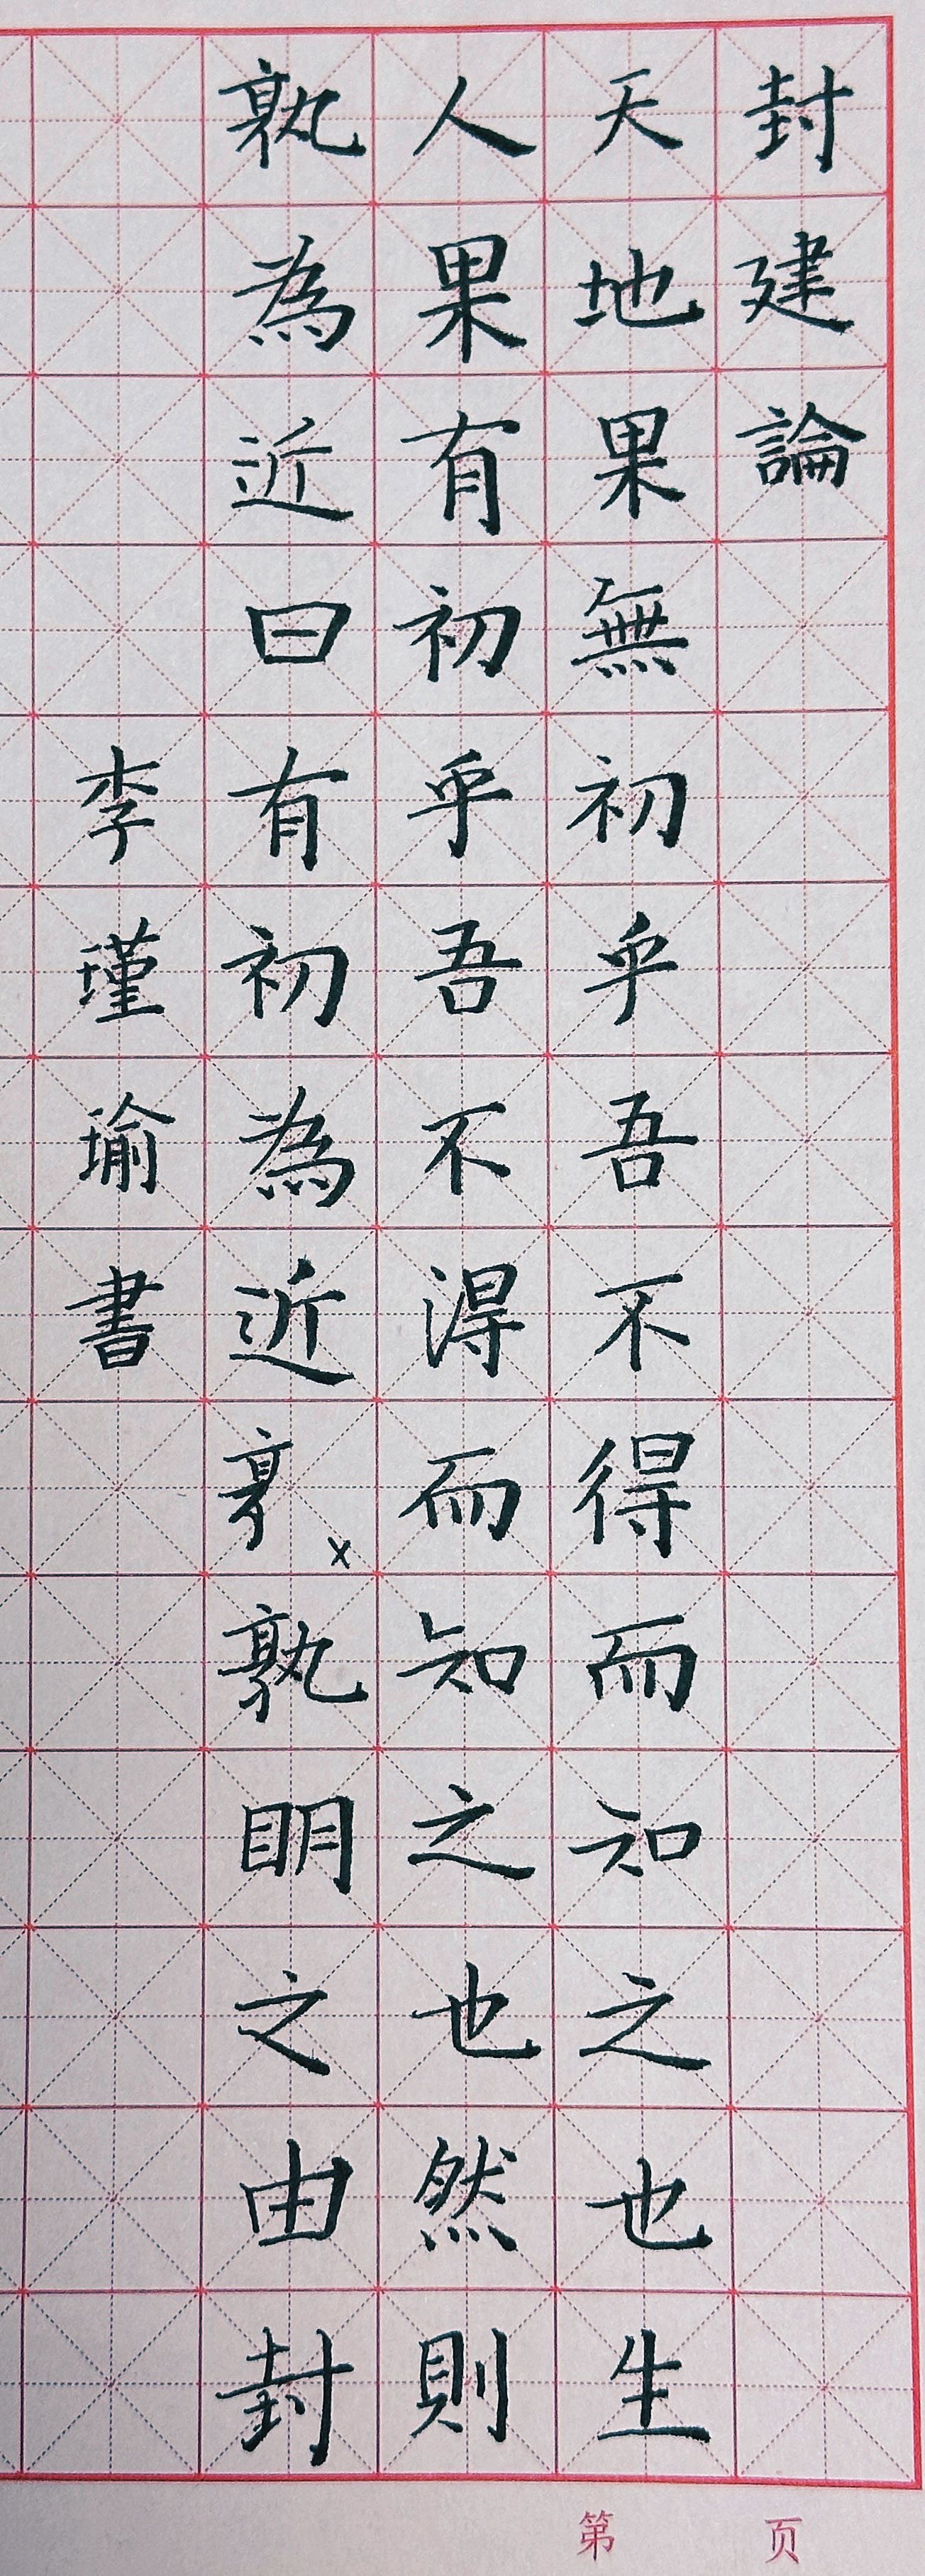 封建論
天地果無初乎吾不得而知之也生
人果有初乎吾不淂而知之也然則
孰為近曰有初為近孰明之由封
李瑾瑜書
第 页